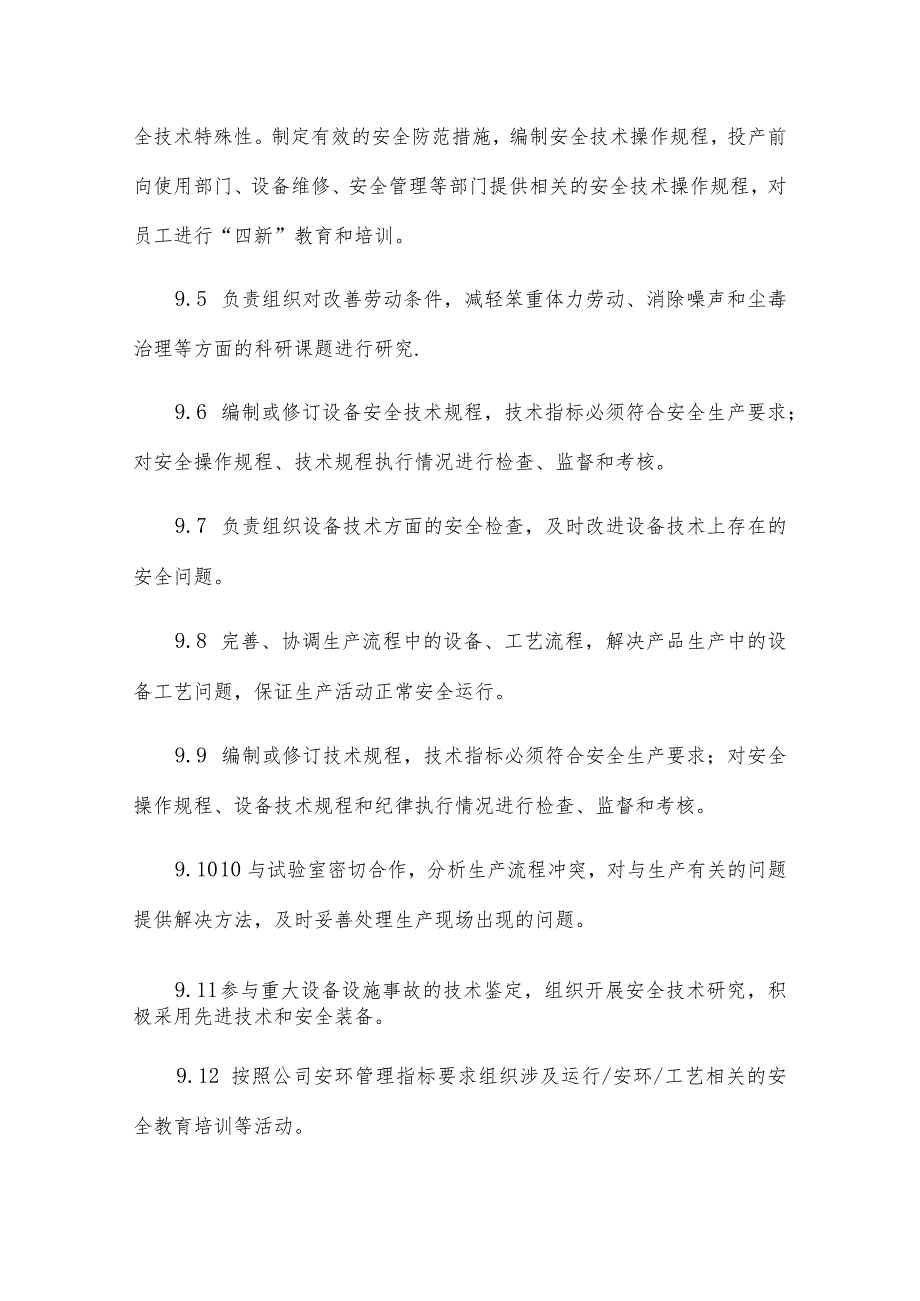 全技术特殊性。制定有效的安全防范措施，编制安全技术操作规程，投产前
向使用部门、设备维修、安全管理等部门提供相关的安全技术操作规程，对
员工进行“四新”教育和培训。
9.5 负责组织对改善劳动条件，减轻笨重体力劳动、消除噪声和尘毒
治理等方面的科研课题进行研究.
9.6 编制或修订设备安全技术规程，技术指标必须符合安全生产要求；
对安全操作规程、技术规程执行情况进行检查、监督和考核。
9.7 负责组织设备技术方面的安全检查，及时改进设备技术上存在的
安全问题。
9.8 完善、协调生产流程中的设备、工艺流程，解决产品生产中的设
备工艺问题，保证生产活动正常安全运行。
9.9 编制或修订技术规程，技术指标必须符合安全生产要求；对安全
操作规程、设备技术规程和纪律执行情况进行检查、监督和考核。
9.1010 与试验室密切合作，分析生产流程冲突，对与生产有关的问题
提供解决方法，及时妥善处理生产现场出现的问题。
9.11参与重大设备设施事故的技术鉴定，组织开展安全技术研究，积
极采用先进技术和安全装备。
9.12 按照公司安环管理指标要求组织涉及运行/安环/工艺相关的安
全教育培训等活动。